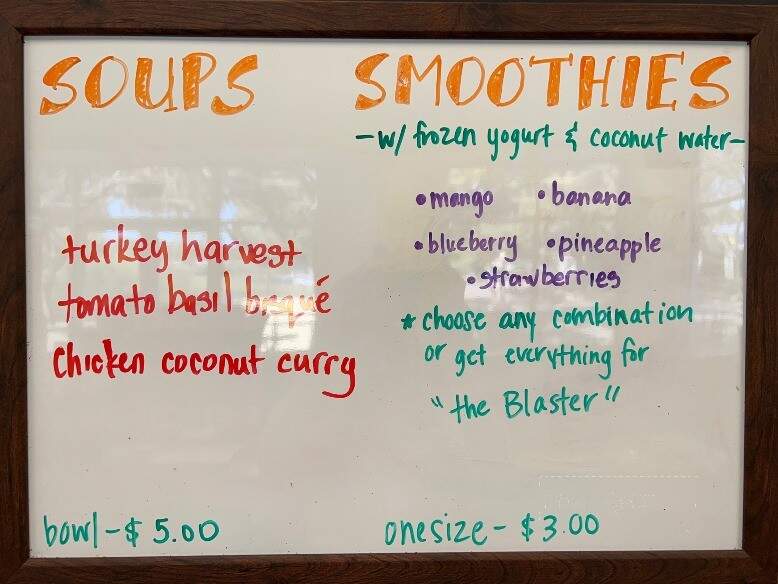 SOUPS
turkey harvest
tomato basil bisqué
chicken coconut curry
bowl - $ 5.00
SMOOTHIES
- w/ frozen yogurt & coconut water -
• mango • banana
• blueberry • pineapple
• strawberries
* choose any combination
or get everything for
"the Blaster"
one size - $ 3.00